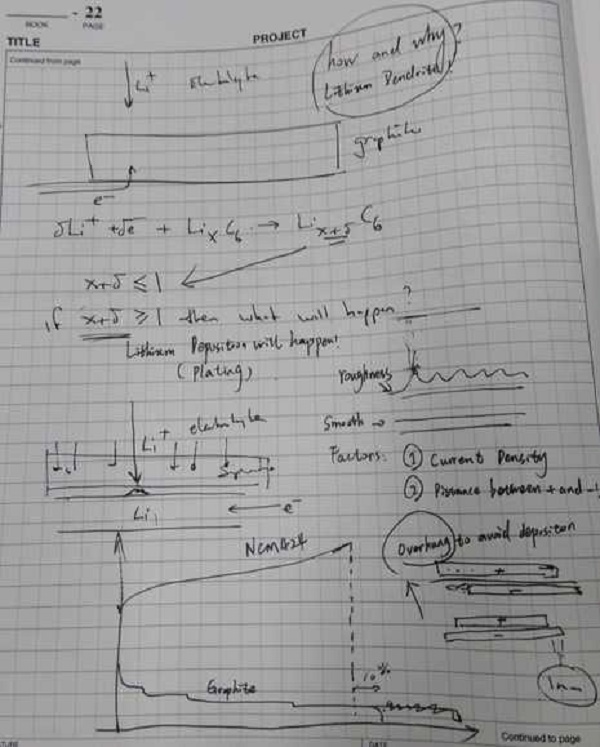 - 22
BOOK
PAGE
TITLE
PROJECT
Continued from page
how and why?
Lithium Dendrite!
Li+ electrolyte
graphite
e-
δLi+ + δe- + LixC6 → Lix+δC6
x+δ ≤ 1
if x+δ ≥ 1 then what will happen?
Lithium Deposition will happen!
(plating)
roughness
Smooth →
Factors: ① Current Density
② Distance between + and -!
Li+ electrolyte
Li
e-
Overhang to avoid deposition
+
-
+
-
1mm
10%
Graphite
Continued to page
DATE